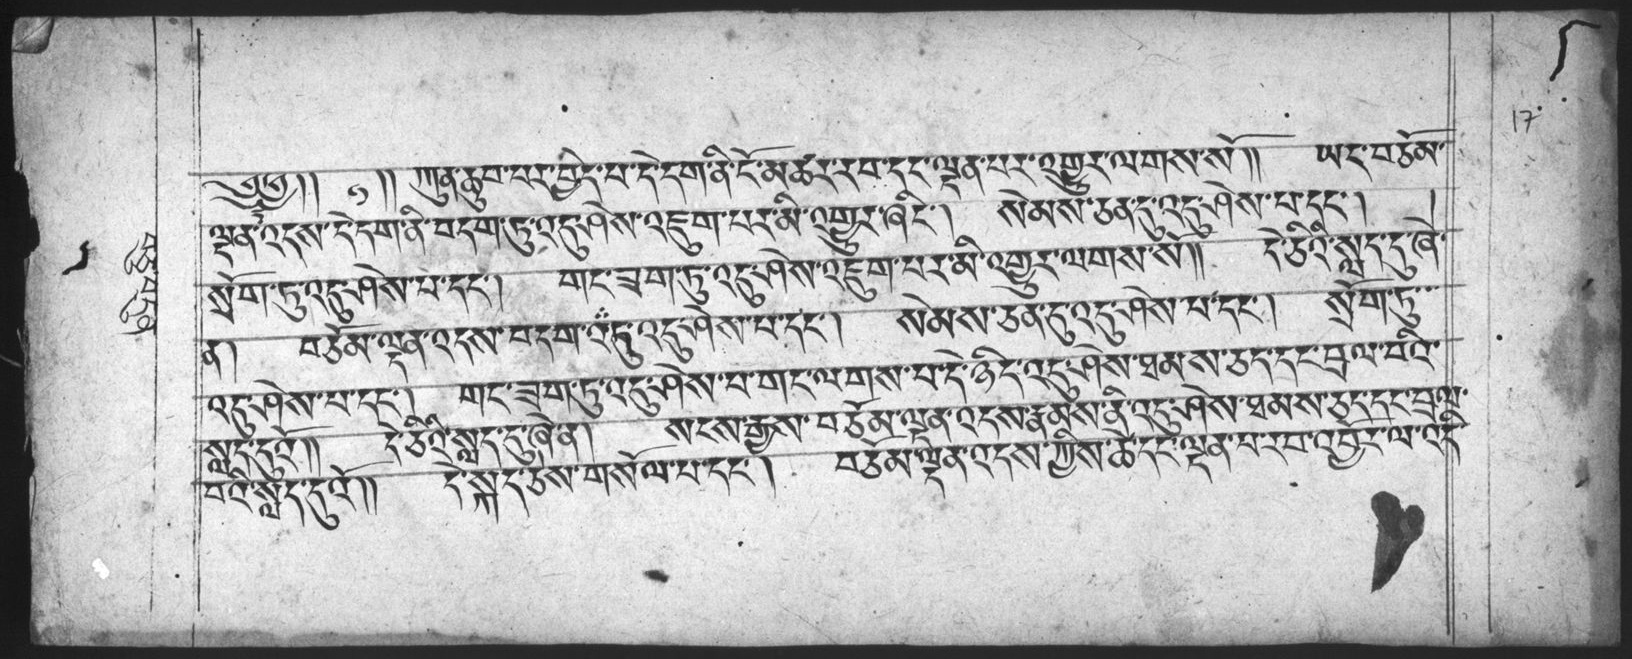 ༄༅།། ༡ །། ཀུན་ཆུབ་པར་བྱིད་པ་དེ་དག་ནི་ངོ་མཚར་རབ་དང་ལྡན་པར་འགྱུར་ལགས་སོ།། ཡང་བཅོམ་
ལྡན་འདས་དེ་དག་ནི་བདག་ཏུ་འདུ་ཤེས་འཇུག་པར་མི་འགྱུར་ཞིང་། སེམས་ཅན་དུ་འདུ་ཤེས་པ་དང་། །
སྲོག་ཏུ་འདུ་ཤེས་པ་དང་། གང་ཟག་ཏུ་འདུ་ཤེས་འཇུག་པར་མི་འགྱུར་ལགས་སོ།། དེ་ཅིའི་སླད་དུ་ཞེ་
ན། བཅོམ་ལྡན་འདས་བདག་ཏུ་འདུ་ཤེས་པ་དང་། སེམས་ཅན་དུ་འདུ་ཤེས་པ་དང་། སྲོག་ཏུ་
འདུ་ཤེས་པ་དང་། གང་ཟག་ཏུ་འདུ་ཤེས་པ་གང་ལགས་པ་དེ་ཉིད་འདུ་ཤེས་ཐམས་ཅད་དང་བྲལ་བའི་
སླད་དུའོ།། དེ་ཅིའི་སླད་དུ་ཞེ་ན། སངས་རྒྱས་བཅོམ་ལྡན་འདས་རྣམས་ནི་འདུ་ཤེས་ཐམས་ཅད་དང་བྲལ་
བའི་སླད་དུའོ།། དེ་སྐད་ཅེས་གསོལ་པ་དང་། བཅོམ་ལྡན་འདས་ཀྱིས་ཚེ་དང་ལྡན་པ་རབ་འབྱོར་ལ་འདི་
17